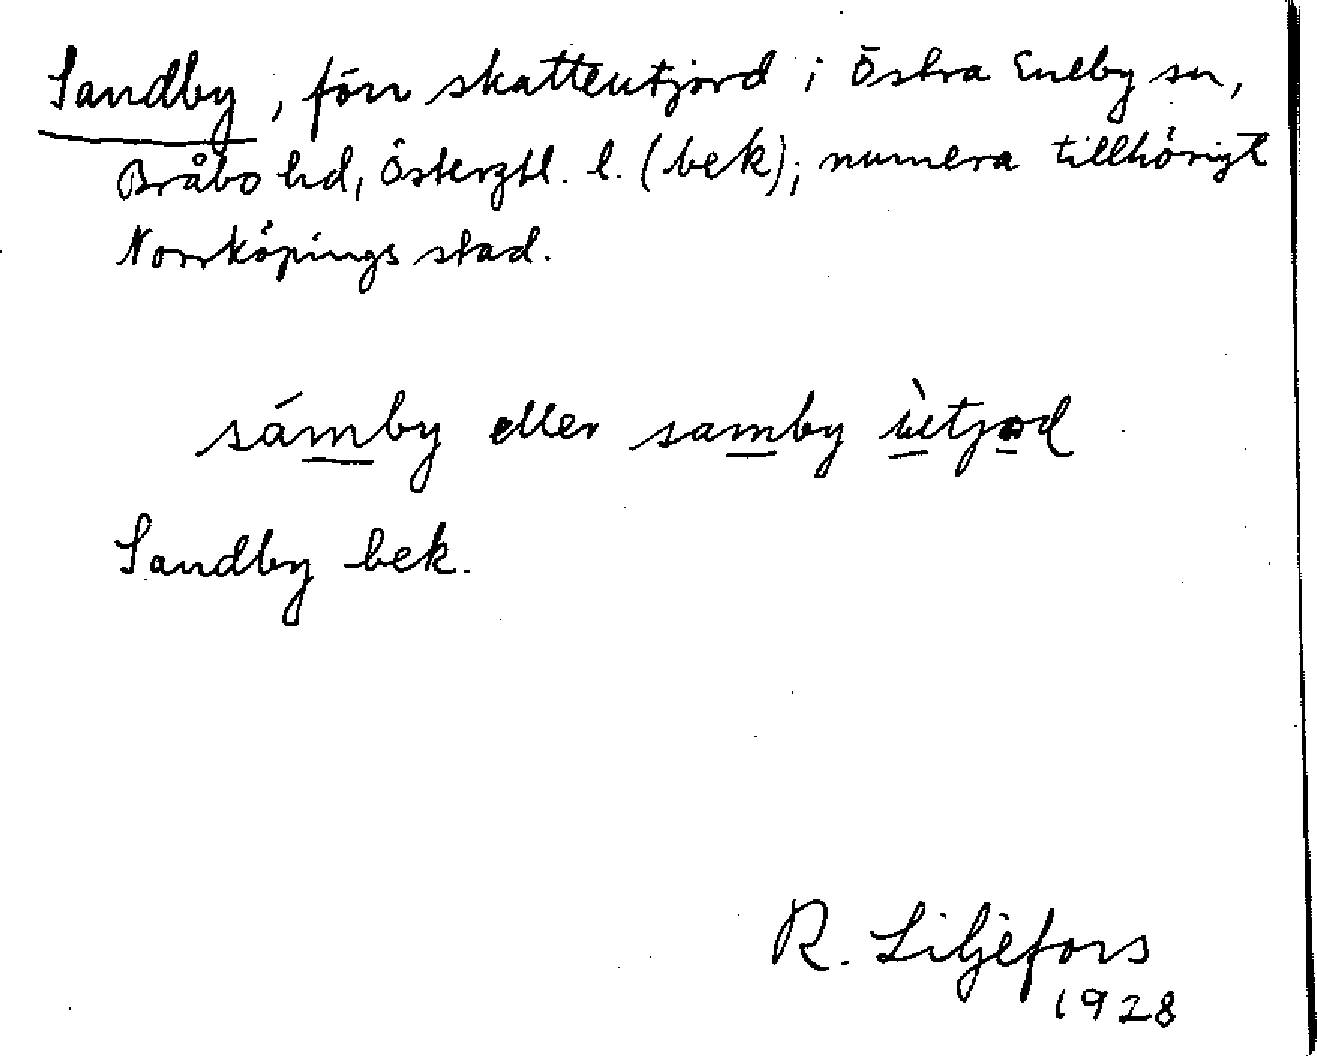 Sandby, förr skatteutjord i Östra Eneby sn,
Bråbo hd, Östergtl. l. (bek); numera tillhörigt
Norrköpings stad.
sámby eller samby ùtjɷd
Sandby bek.
R. Liljefors
1928